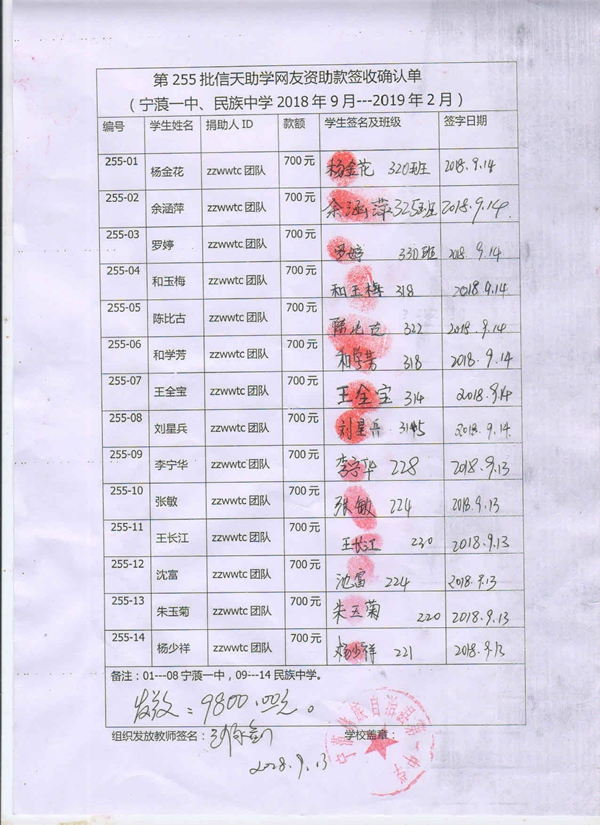 第 255 批信天助学网友资助款签收确认单
（宁蒗一中、民族中学 2018 年 9 月---2019 年 2 月）
编号 学生姓名 捐助人 ID 款额 学生签名及班级 签字日期
255-01 杨金花 zzwwtc 团队 700 元 杨金花 320班 2018.9.14
255-02 余涵萍 zzwwtc 团队 700 元 余涵萍 325班 2018.9.14
255-03 罗婷 zzwwtc 团队 700 元 罗婷 330班 2018.9.14
255-04 和玉梅 zzwwtc 团队 700 元 和玉梅 318 2018.9.14
255-05 陈比古 zzwwtc 团队 700 元 陈比古 322 2018.9.14
255-06 和学芳 zzwwtc 团队 700 元 和学芳 318 2018.9.14
255-07 王全宝 zzwwtc 团队 700 元 王全宝 314 2018.9.14
255-08 刘星兵 zzwwtc 团队 700 元 刘星兵 2018.9.14
255-09 李宁华 zzwwtc 团队 700 元 李宁华 228 2018.9.13
255-10 张敏 zzwwtc 团队 700 元 张敏 224 2018.9.13
255-11 王长江 zzwwtc 团队 700 元 王长江 230 2018.9.13
255-12 沈富 zzwwtc 团队 700 元 沈富 224 2018.9.13
255-13 朱玉菊 zzwwtc 团队 700 元 朱玉菊 220 2018.9.13
255-14 杨少祥 zzwwtc 团队 700 元 杨少祥 221 2018.9.13
备注：01---08 宁蒗一中，09---14 民族中学。
发放：9800.00元。
组织发放教师签名： 学校盖章：
2018.9.13
宁蒗彝族自治县第一中学